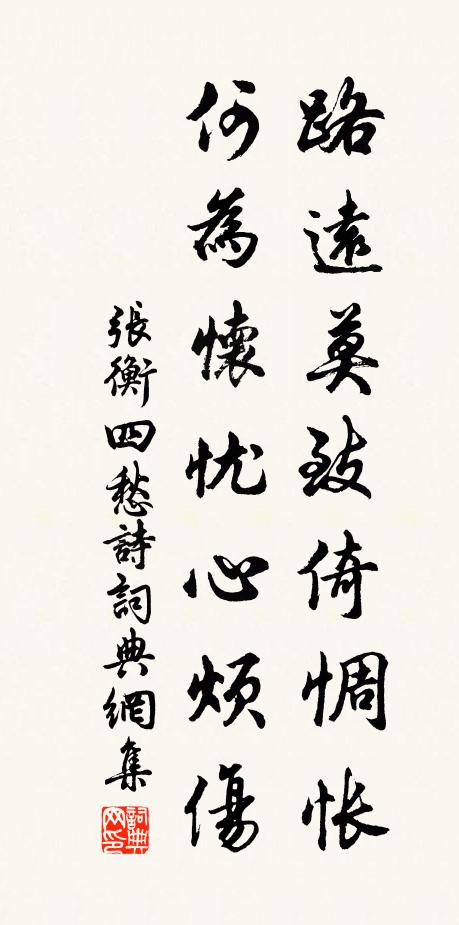 路遠莫致倚惆怅
何為懷忧心煩傷
張衡四愁詩詞典網集
詞典网印